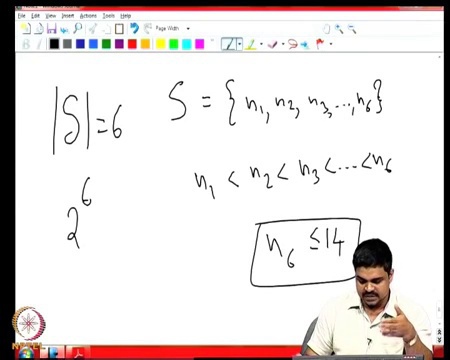 File Edit View Insert Actions Tools Help
Page Width
|S| = 6
S = { n₁, n₂, n₃, ..., n₆ }
n₁ < n₂ < n₃ < ... < n₆
2⁶
n₆ ≤ 14